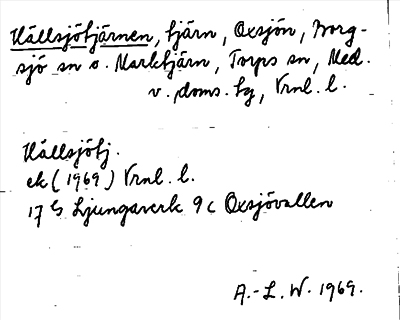 Hällsjötjärnen, tjärn, Oxsjön, Borg-
sjö sn o. Marktjärn, Torps sn, Med.
v. doms. tg, Vrnl. l.
Hällsjötj.
ek (1969) Vrnl. l.
17 G Ljungaverk 9 c Oxsjövallen
A.-L. W. 1969.